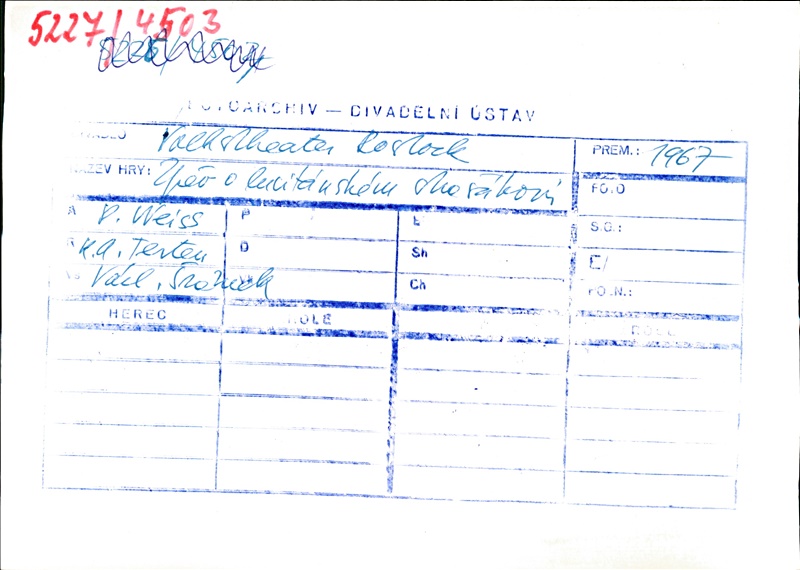 5227/4503
FOTOARCHIV — DIVADELNÍ ÚSTAV
Volkstheater Rostock
PREM.: 1967
NÁZEV HRY: Zpěv o lusitánském strašákovi
FO.O
A P. Weiss P L S.O.:
R H.A. Perten D Sh E/
Vs Vách Ch FO.N.:
HEREC ROLE ROLE